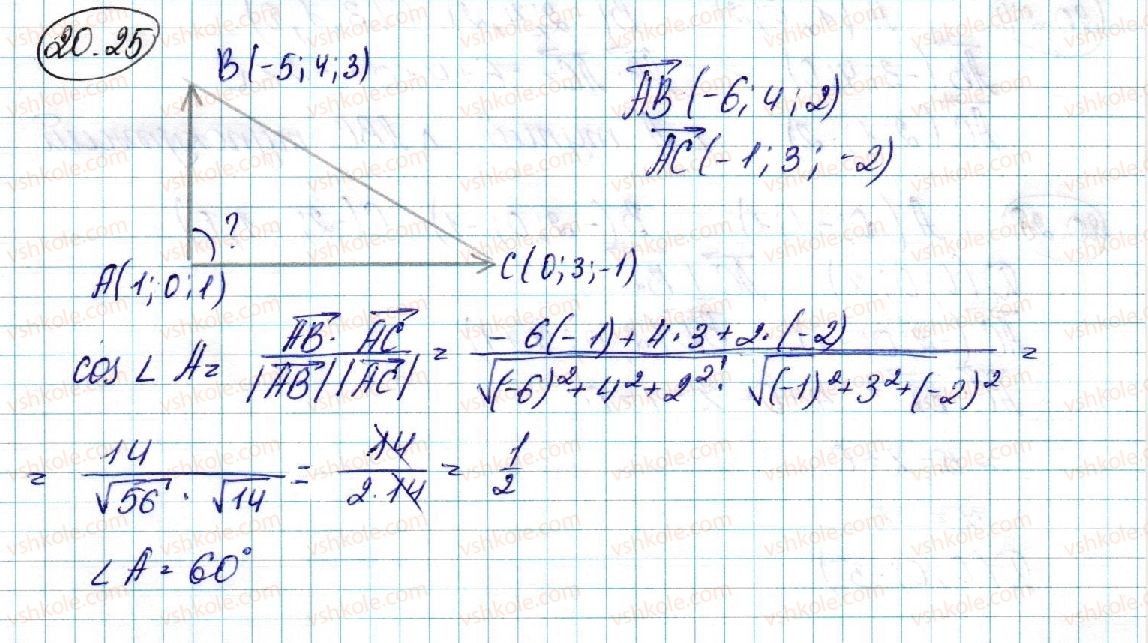 20.25
B(-5; 4; 3)
AB⃗ (-6; 4; 2)
AC⃗ (-1; 3; -2)
?
A(1; 0; 1)
C(0; 3; -1)
cos ∠ A = (AB⃗ · AC⃗) / (|AB⃗| |AC⃗|) = (-6(-1) + 4·3 + 2·(-2)) / (√((-6)² + 4² + 2²) · √((-1)² + 3² + (-2)²)) =
= 14 / (√56 · √14) = 14 / (2·14) = 1/2
∠ A = 60°
vshkole.com